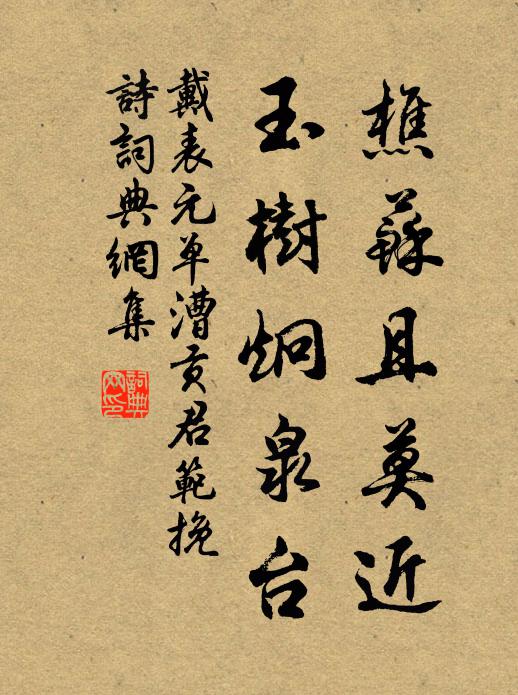 樵蘇且莫近
玉樹炯泉台
戴表元单漕贡君範挽
詩詞典網集
詞典網印